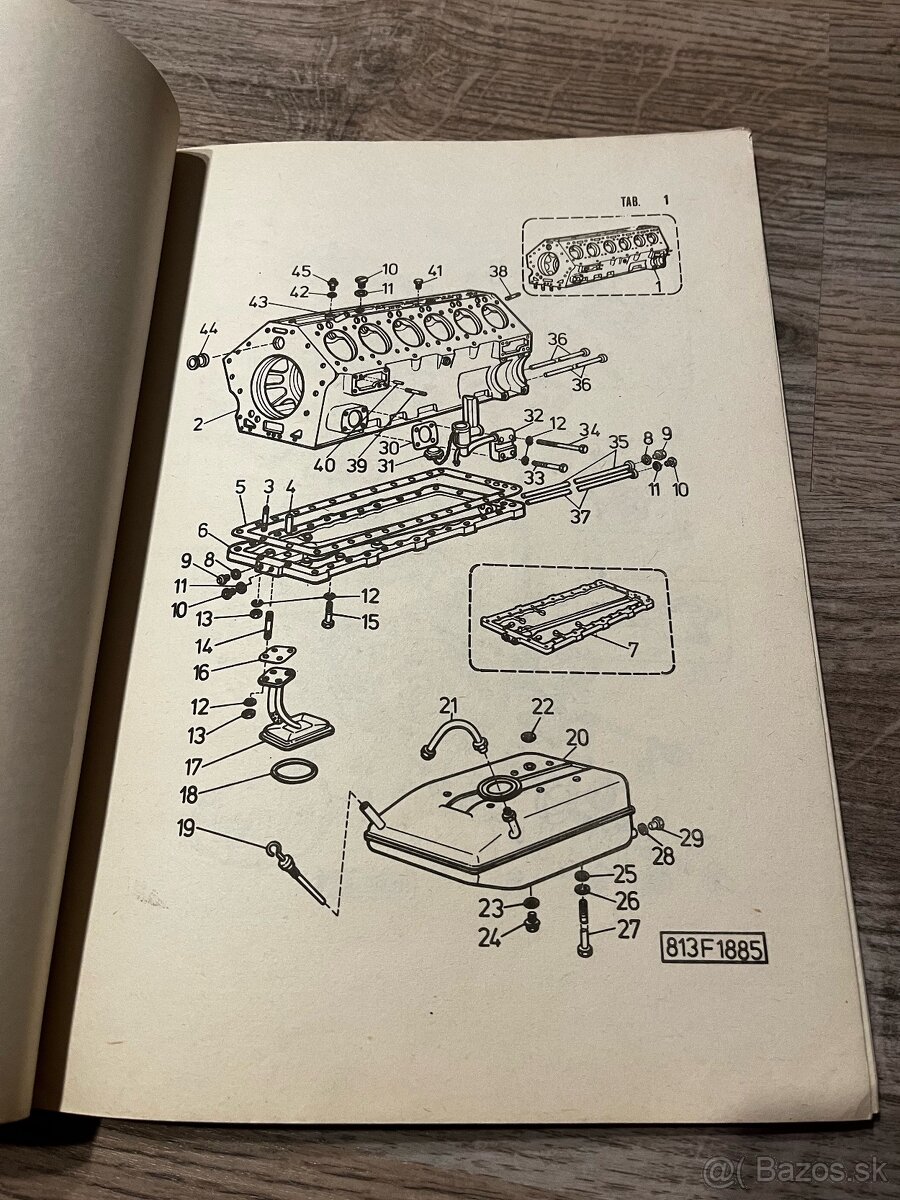 TAB. 1
1
45 10 41 38
42 11
43
44
36
36
2
32 12
34
30
40 39 31
33
35 8 9
11 10
37
5 3 4
6
9 8
11
10
12
13
15
14
16
7
12
13
21 22
20
17
18
19
29
28
25
23 26
24 27
813F1885
@( Bazos.sk